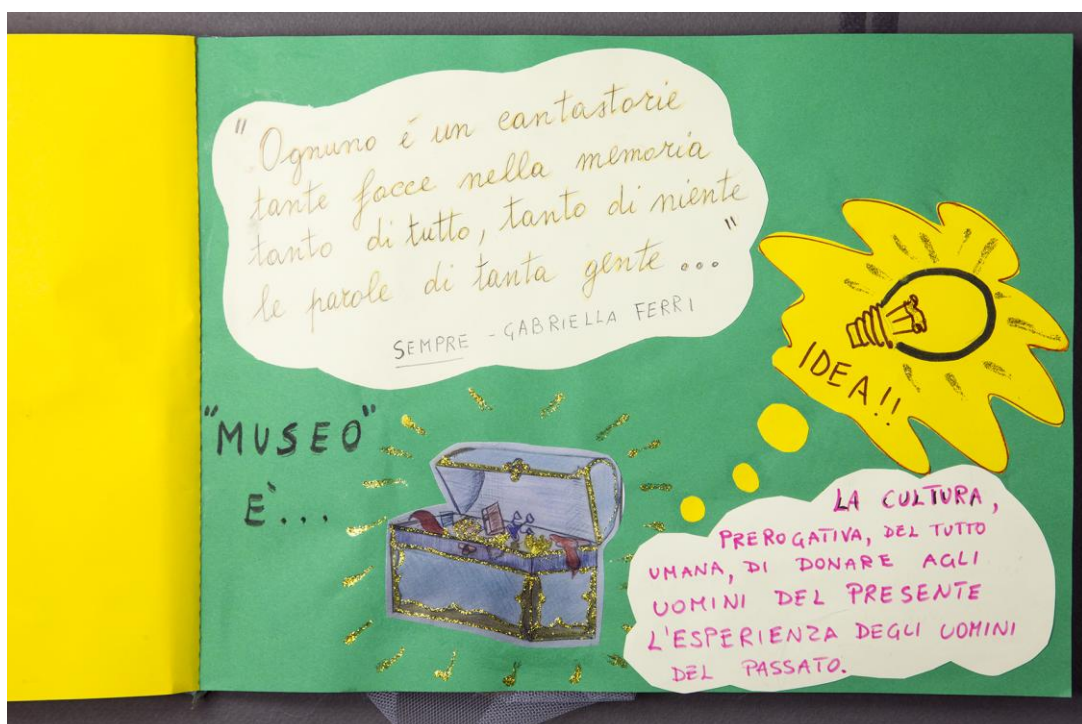 "Ognuno è un cantastorie
tante facce nella memoria
tanto di tutto, tanto di niente
le parole di tanta gente ..."
SEMPRE - GABRIELLA FERRI
IDEA!!
"MUSEO"
È...
LA CULTURA,
PREROGATIVA, DEL TUTTO
UMANA, DI DONARE AGLI
UOMINI DEL PRESENTE
L'ESPERIENZA DEGLI UOMINI
DEL PASSATO.